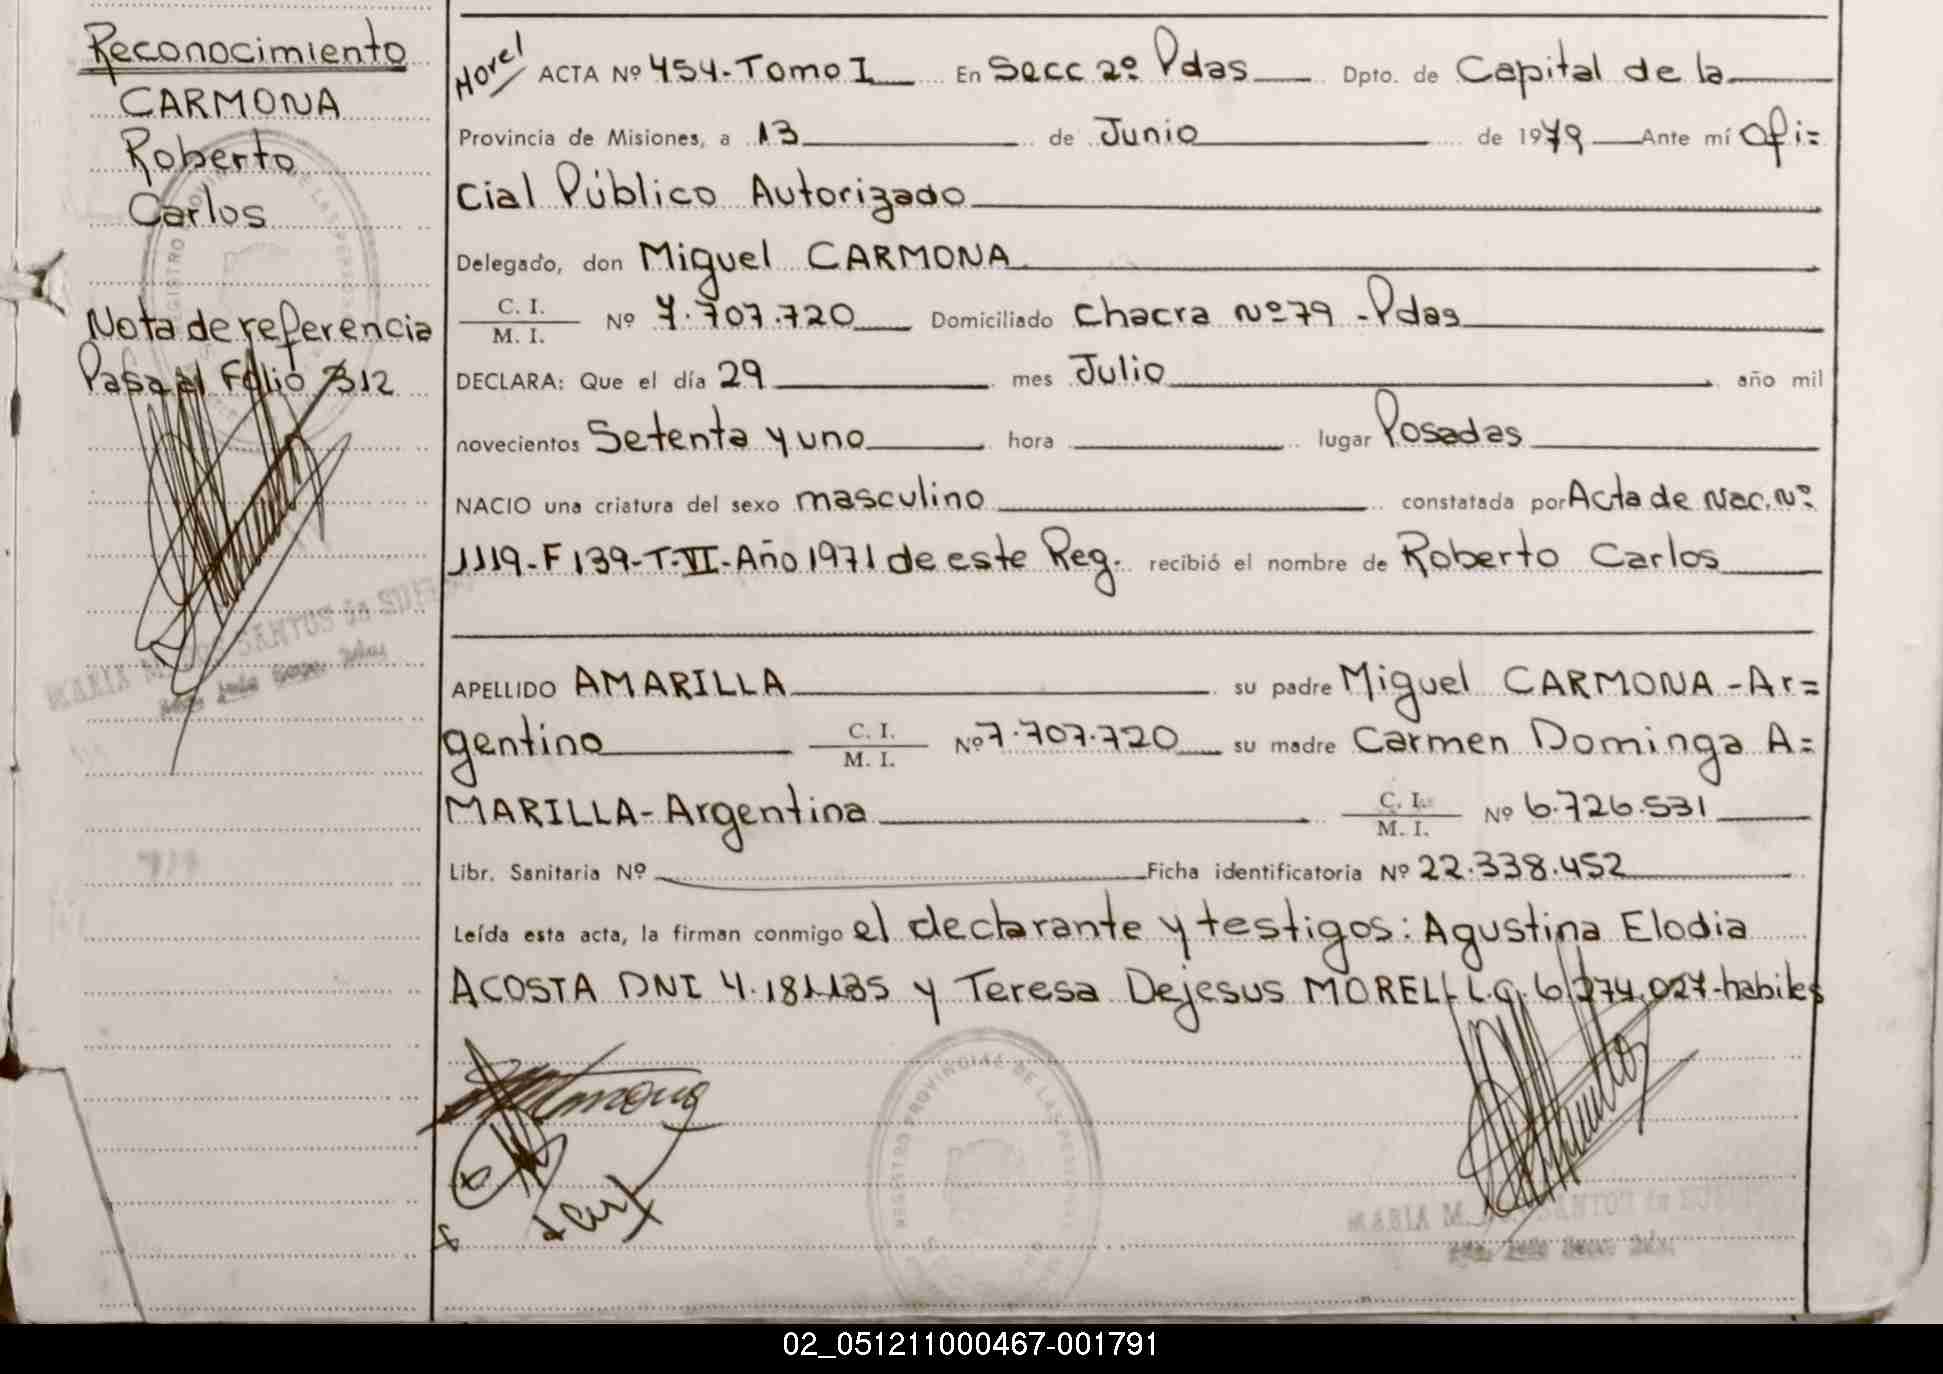 Reconocimiento
CARMONA
Roberto
Carlos
Nota de referencia
Pasa al Folio 312
ACTA Nº 454-Tomo I En Secc 2º Pdas Dpto. de Capital de la
Provincia de Misiones, a 13 de Junio de 1979 Ante mí Ofi=
cial Público Autorizado
Delegado, don Miguel CARMONA
C. I.
M. I. Nº 7.707.720 Domiciliado Chacra Nº 79 - Pdas
DECLARA: Que el día 29 mes Julio año mil
novecientos Setenta y uno hora lugar Posadas
NACIO una criatura del sexo masculino constatada por Acta de Nac. Nº
1119-F 139-T-VI-Año 1971 de este Reg. recibió el nombre de Roberto Carlos
APELLIDO AMARILLA su padre Miguel CARMONA - Ar=
gentino C. I.
M. I. Nº 7.707.720 su madre Carmen Dominga A=
MARILLA - Argentina C. I.
M. I. Nº 6.726.531
Libr. Sanitaria Nº Ficha identificatoria Nº 22.338.452
Leída esta acta, la firman conmigo el declarante y testigos: Agustina Elodia
ACOSTA DNI y Teresa Dejesus MORELL L.C. habiles
REGISTRO PROVINCIAL DE LAS PERSONAS
MARIA M. SANTOS de
02_051211000467-001791